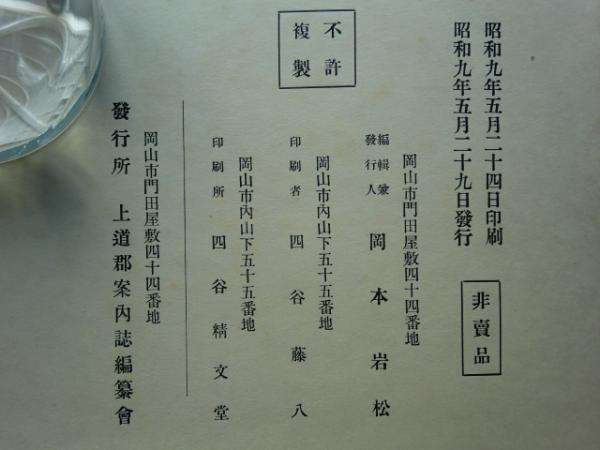 昭和九年五月二十四日印刷
昭和九年五月二十九日發行
非賣品
岡山市門田屋敷四十四番地
編輯兼
發行人
岡本岩松
岡山市內山下五十五番地
印刷者 四谷藤八
岡山市內山下五十五番地
印刷所 四谷精文堂
不許
複製
岡山市門田屋敷四十四番地
發行所 上道郡案內誌編纂會